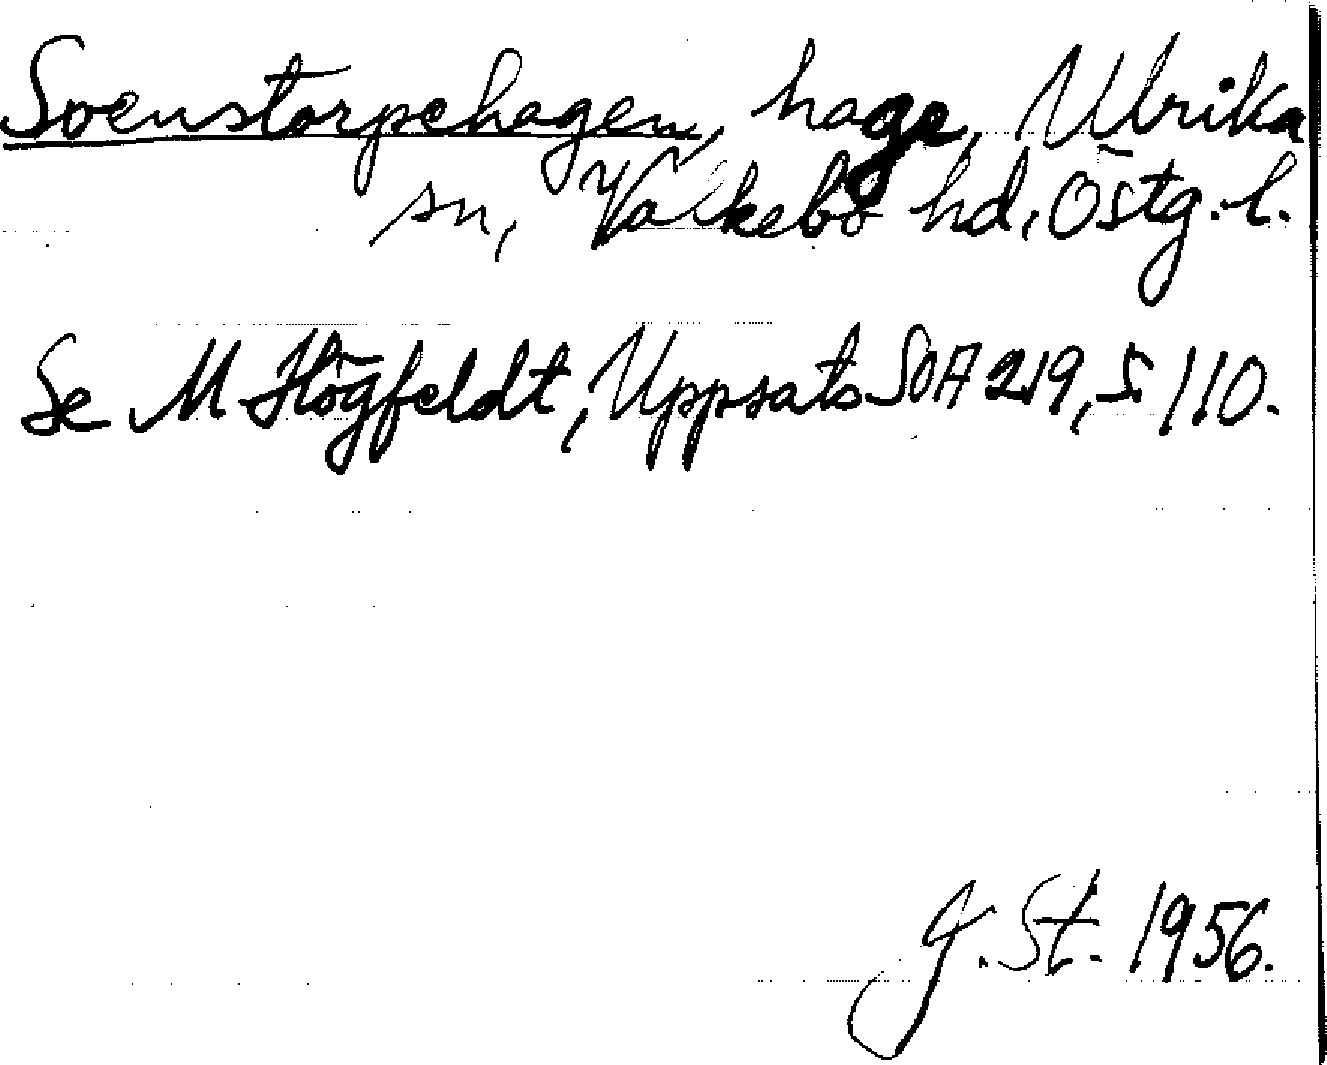 Svenstorpehagen, hage, Ulrika
sn, Valkebo hd, Östg. l.
Se M Högfeldt, Uppsats SOA 219, s 110.
G. St. 1956.